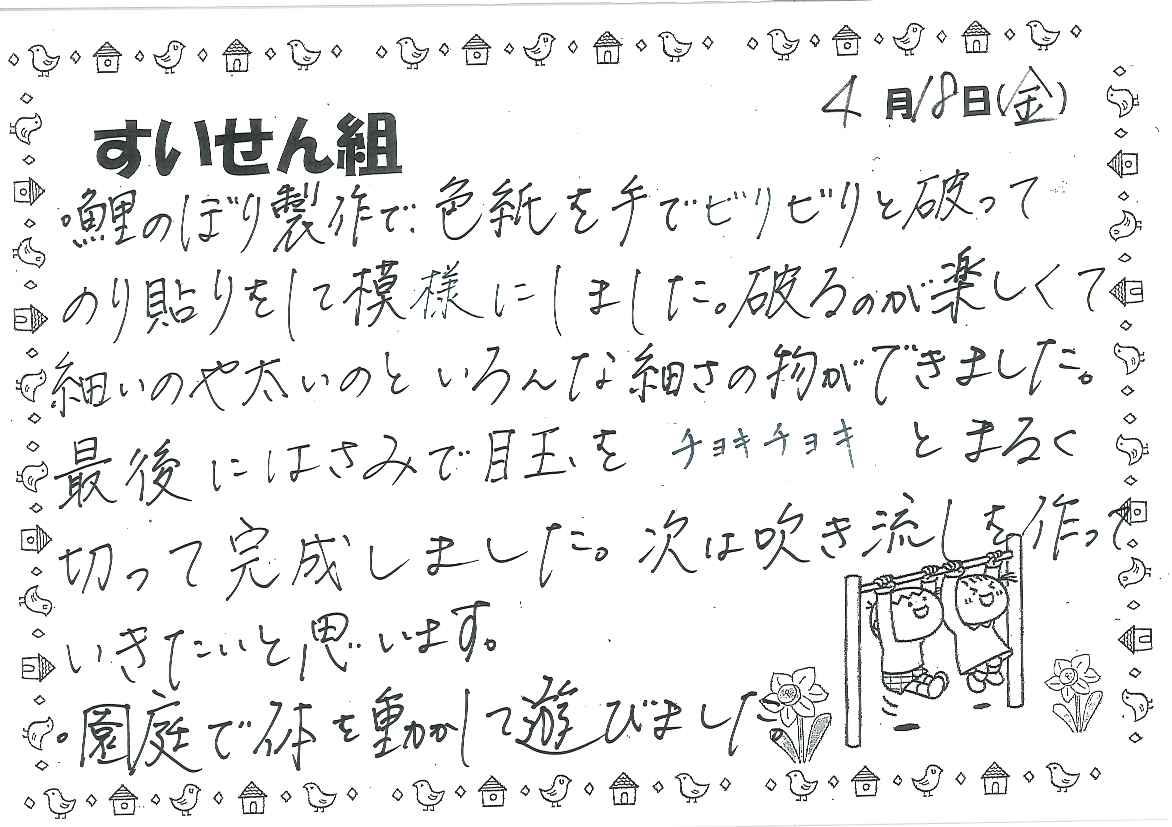 4月18日(金)
すいせん組
・鯉のぼり製作で、色紙を手でビリビリと破って
のり貼りをして模様にしました。破るのが楽しくて
細いのや太いのといろんな細さの物ができました。
最後にはさみで目玉をチョキチョキとまるく
切って完成しました。次は吹き流しを作って
いきたいと思います。
・園庭で体を動かして遊びました。